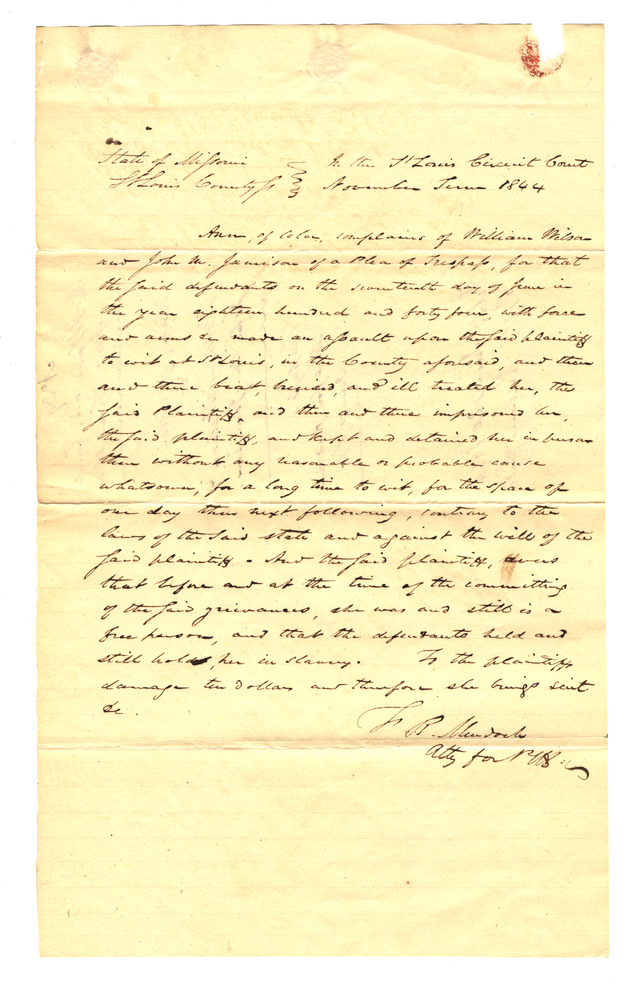 State of Missouri } In the St Louis Circuit Court
St Louis County ss } November Term 1844
Ann, of color, complains of William Wilson
and John M. Jamison of a Plea of Trespass, for that
the said defendants on the seventeenth day of June in
the year eighteen hundred and forty four, with force
and arms &c made an assault upon the said plaintiff
to wit at St Louis, in the County aforesaid, and then
and there beat, bruised, and ill treated her, the
said Plaintiff, and then and there imprisoned her,
the said plaintiff, and kept and detained her in prison
there without any reasonable or probable cause
whatsoever, for a long time to wit, for the space of
one day then next following, contrary to the
laws of the said state and against the will of the
said plaintiff. And the said plaintiff, avers
that before and at the time of the committing
of the said grievances, she was and still is a
free person, and that the defendants held and
still hold, her in slavery. To the plaintiffs
damage ten dollars and therefore she brings suit
&c.
F. B. Murdoch
Atty for Plff